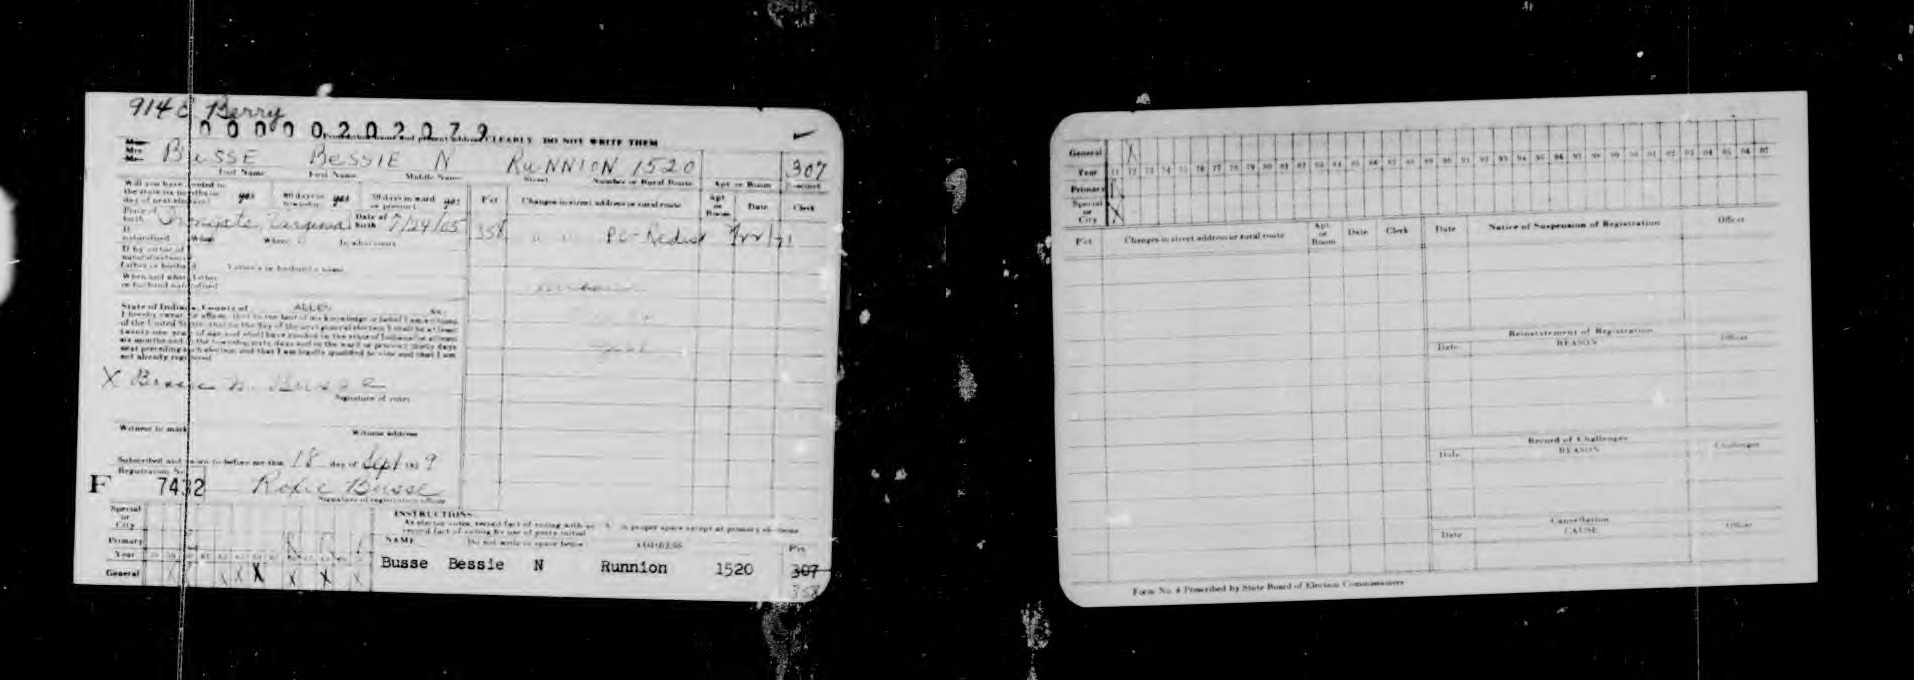 914 E Berry
0 0 0 0 0 2 0 2 0 7 9
CLEARLY DO NOT WRITE THEM
BUSSE BESSIE N RUNNION 1520 307
Last Name First Name Middle Name Street Number or Rural Route Apt or Room Precinct
Will you have resided in
the state six months on
day of next election? yes 60 days in township yes 30 days in ward or precinct yes
Place of birth Date of birth 7/24/05
If naturalized When Where In what court
If by virtue of
naturalization of
father or husband Father's or husband's name
When and where father
or husband naturalized
Pct Changes in street address or rural route Apt or Room Date Clerk
358 Pc-Redist
State of Indiana, County of ALLEN ss:
I hereby swear or affirm that to the best of my knowledge or belief I am a citizen
of the United States, that on the day of the next general election I shall be at least
twenty one years of age and shall have resided in the state of Indiana at least
six months and in the township sixty days and in the ward or precinct thirty days
next preceding such election, and that I am legally qualified to vote and that I am
not already registered
X Bessie N. Busse
Signature of voter
Witness to mark Witness address
Subscribed and sworn to before me this 18 day of Sept 19 9
Registration No.
F 7432 Busse
Signature of registration officer
Special or City
Primary
Year
General
INSTRUCTIONS
As elector votes, record fact of voting with an X in proper space except at primary elections
record fact of voting by use of party initial
NAME Do not write in space below ADDRESS Pct.
Busse Bessie N Runnion 1520 307
358
General
Year 71 72 73 74 75 76 77 78 79 80 81 82 83 84 85 86 87 88 89 90 91 92 93 94 95 96 97 98 99 00 01 02 03 04 05 06 07
Primary
Special or City
Pct Changes in street address or rural route Apt or Room Date Clerk Date Notice of Suspension of Registration Officer
Reinstatement of Registration
Date REASON Officer
Record of Challenges
Date REASON Challenger
Cancellation
Date CAUSE Officer
Form No. 4 Prescribed by State Board of Election Commissioners